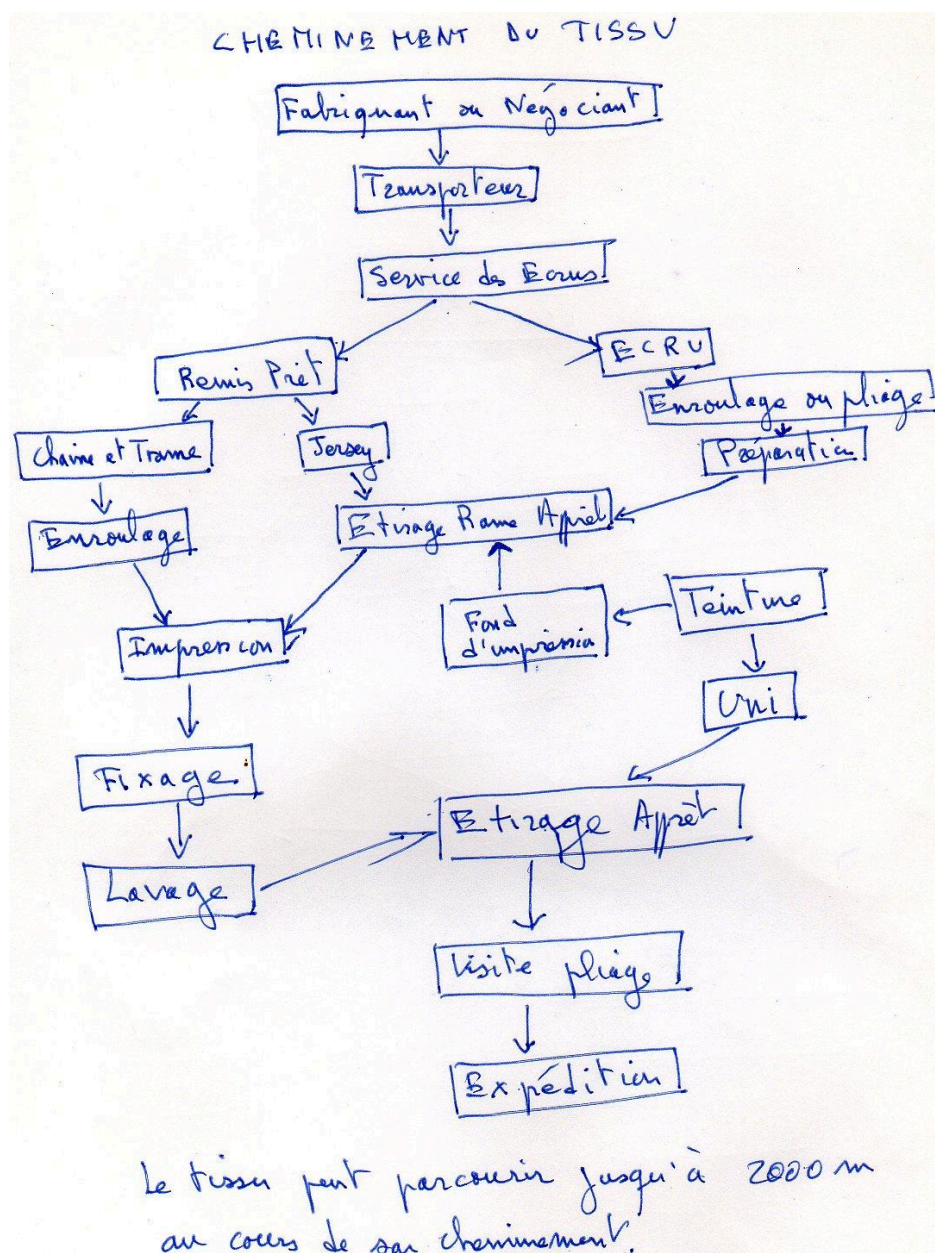 CHEMINEMENT DU TISSU
Fabriquant ou Négociant
Transporteur
Service des Ecrus
Remis Prêt
ECRU
Enroulage ou pliage
Chaine et Trame
Jersey
Préparation
Enroulage
Etirage Rame Apprêt
Teinture
Fond
d'impression
Impression
Uni
Fixage
Etirage Apprêt
Lavage
Visite pliage
Expédition
Le tissu peut parcourir jusqu'à 2000 m
au cours de son cheminement.